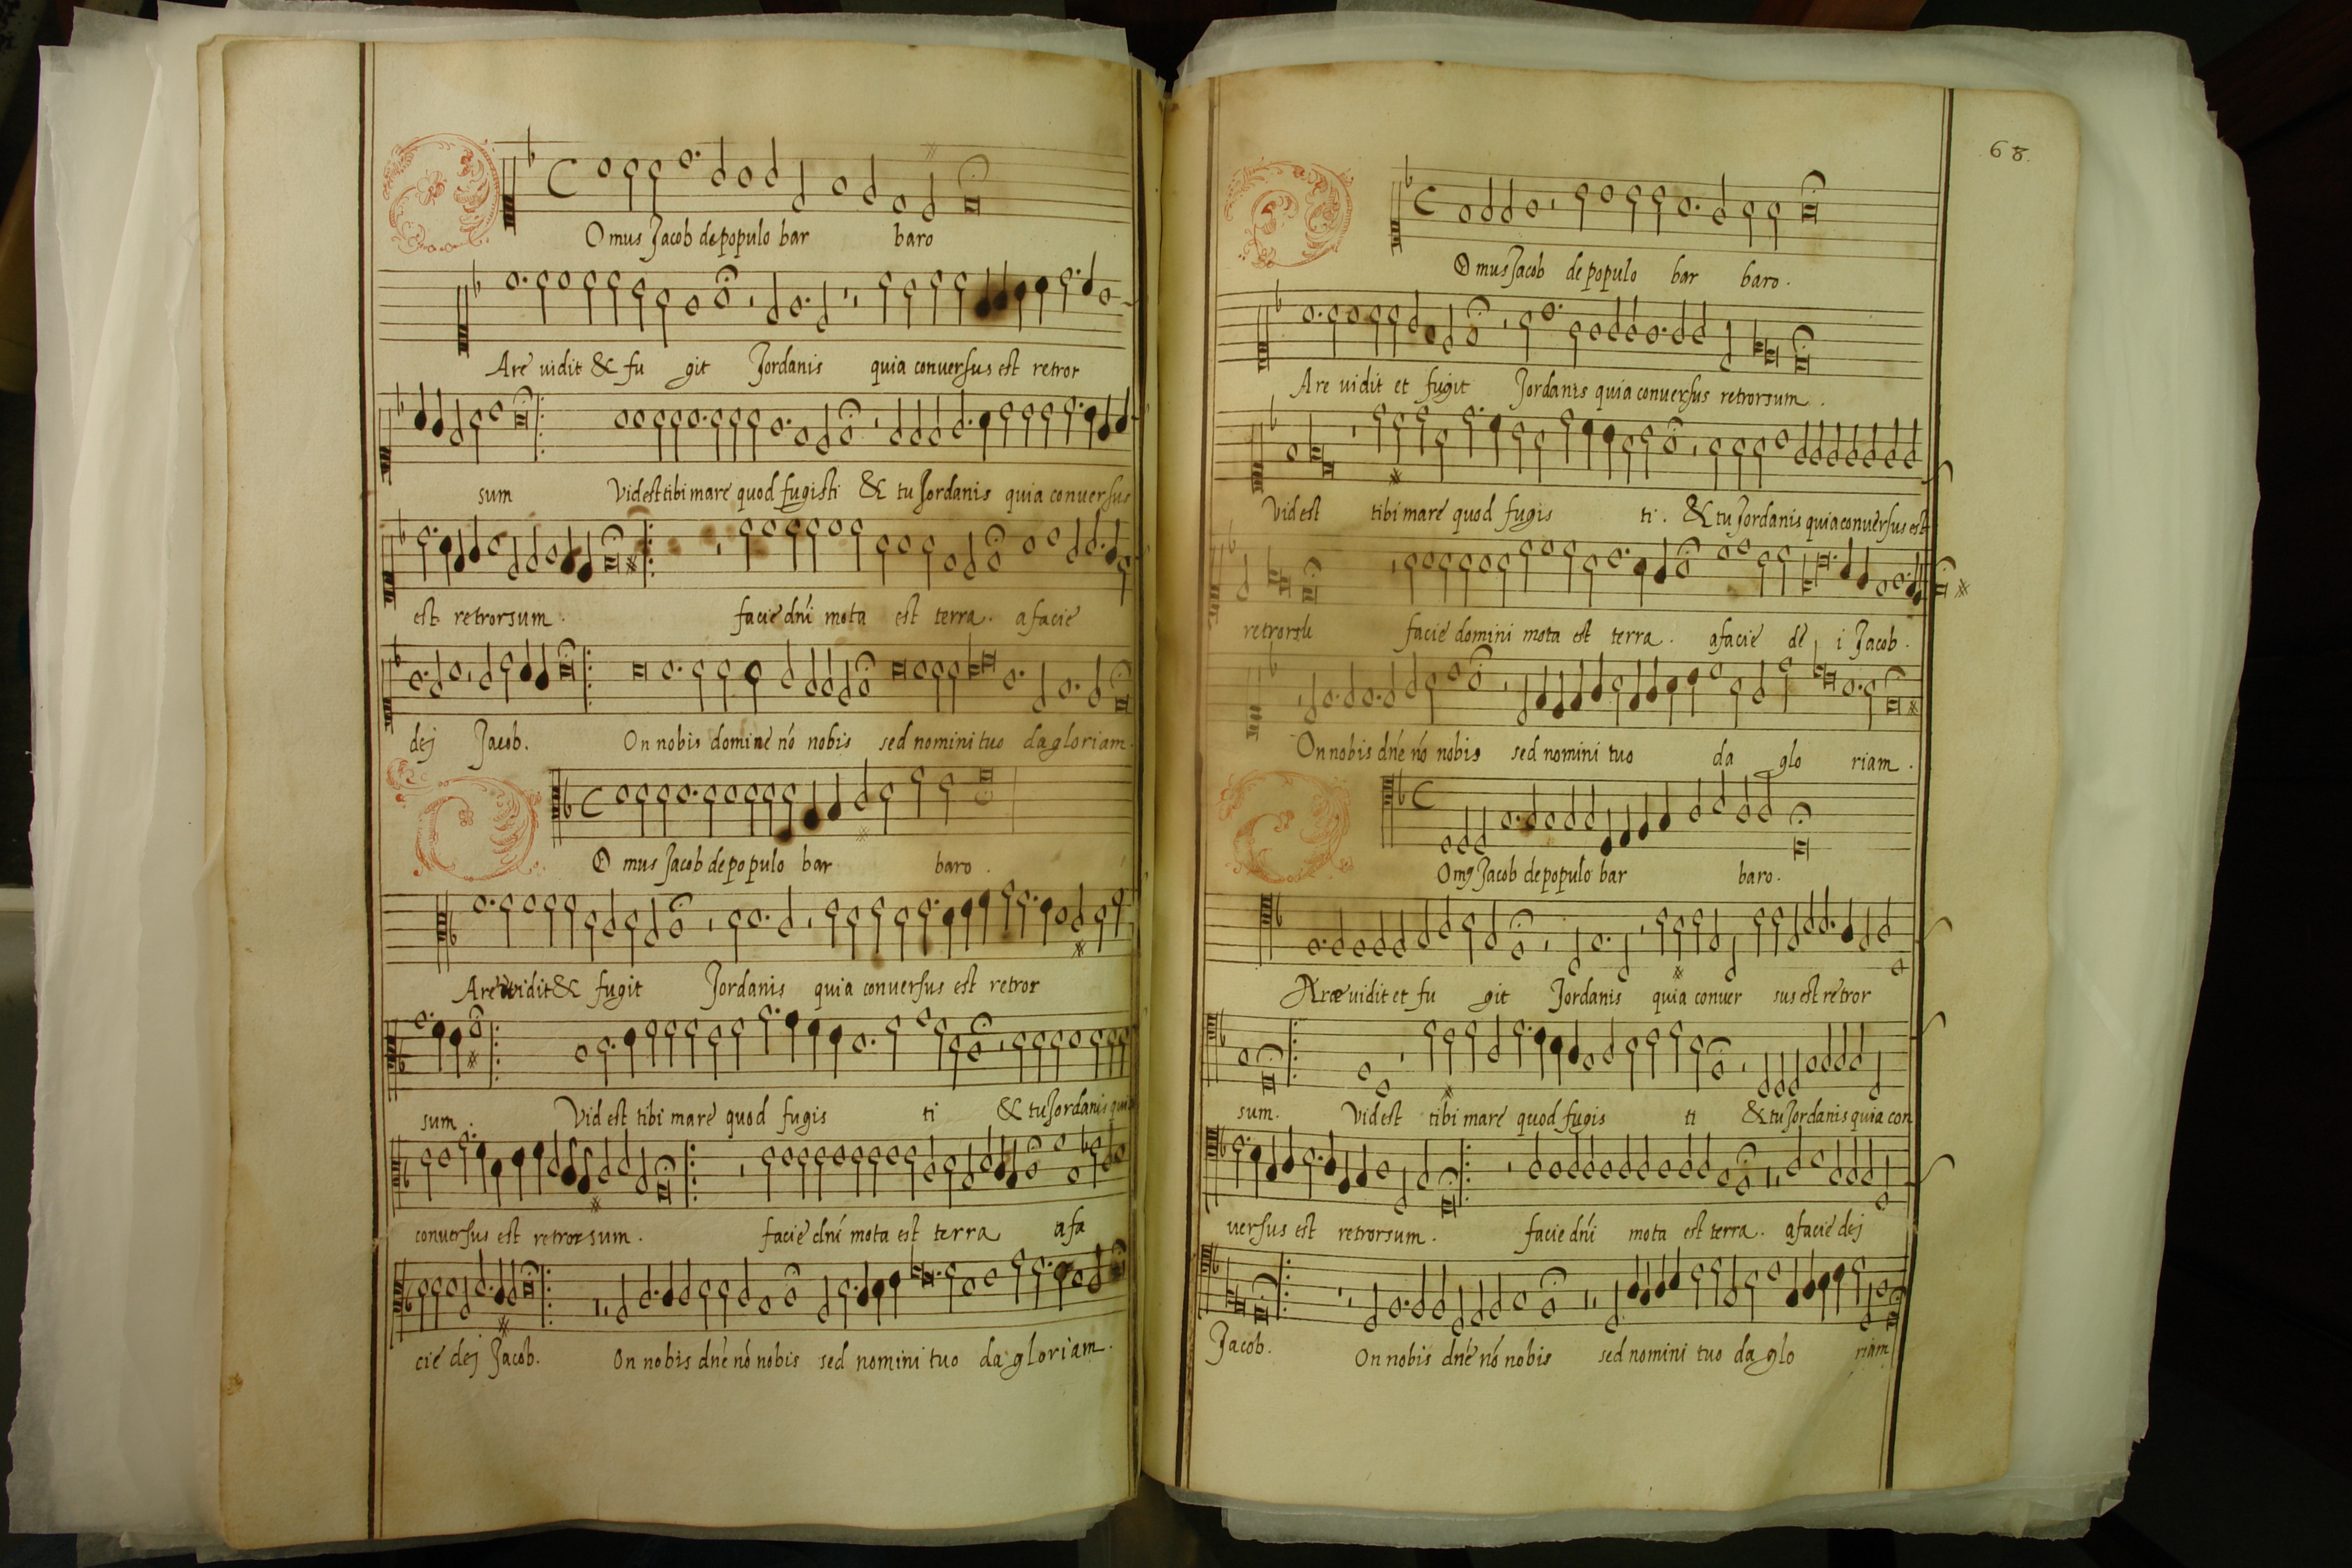 Omus Jacob de populo bar baro
Are vidit & fu git Jordanis quia conversus est retror
sum Vid est tibi mare quod fugisti & tu Jordanis quia conversus
est retrorsum. facie dni mota est terra. a facie
dej Jacob. On nobis domine nó nobis sed nomini tuo da gloriam.
O mus Jacob de populo bar baro.
Are vidit & fugit Jordanis quia conversus est retror
sum. Vid est tibi mare quod fugis ti & tu Jordanis quia
conversus est retrorsum. facie dni mota est terra a fa
cie dej Jacob. On nobis dne nó nobis sed nomini tuo da gloriam.
68.
O mus Jacob de populo bar baro.
Are vidit et fugit Jordanis quia conversus retrorsum.
Vid est tibi mare quod fugis ti. & tu Jordanis quia conversus est
retrorsū facie domini mota est terra. a facie dē i Jacob.
On nobis dne nó nobis sed nomini tuo da glo riam.
Omꝰ Jacob de populo bar baro.
Aræ vidit et fu git Jordanis quia conver sus est retror
sum. Vid est tibi mare quod fugis ti & tu Jordanis quia con
versus est retrorsum. facie dni mota est terra. a facie dej
Jacob. On nobis dne nó nobis sed nomini tuo da glo riam